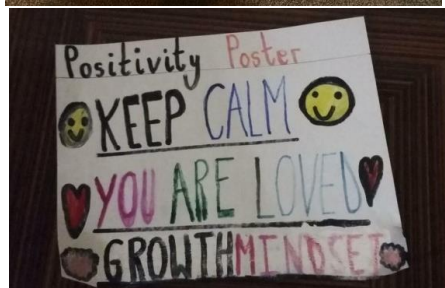 Positivity Poster
KEEP CALM
YOU ARE LOVED
GROWTHMINDSET